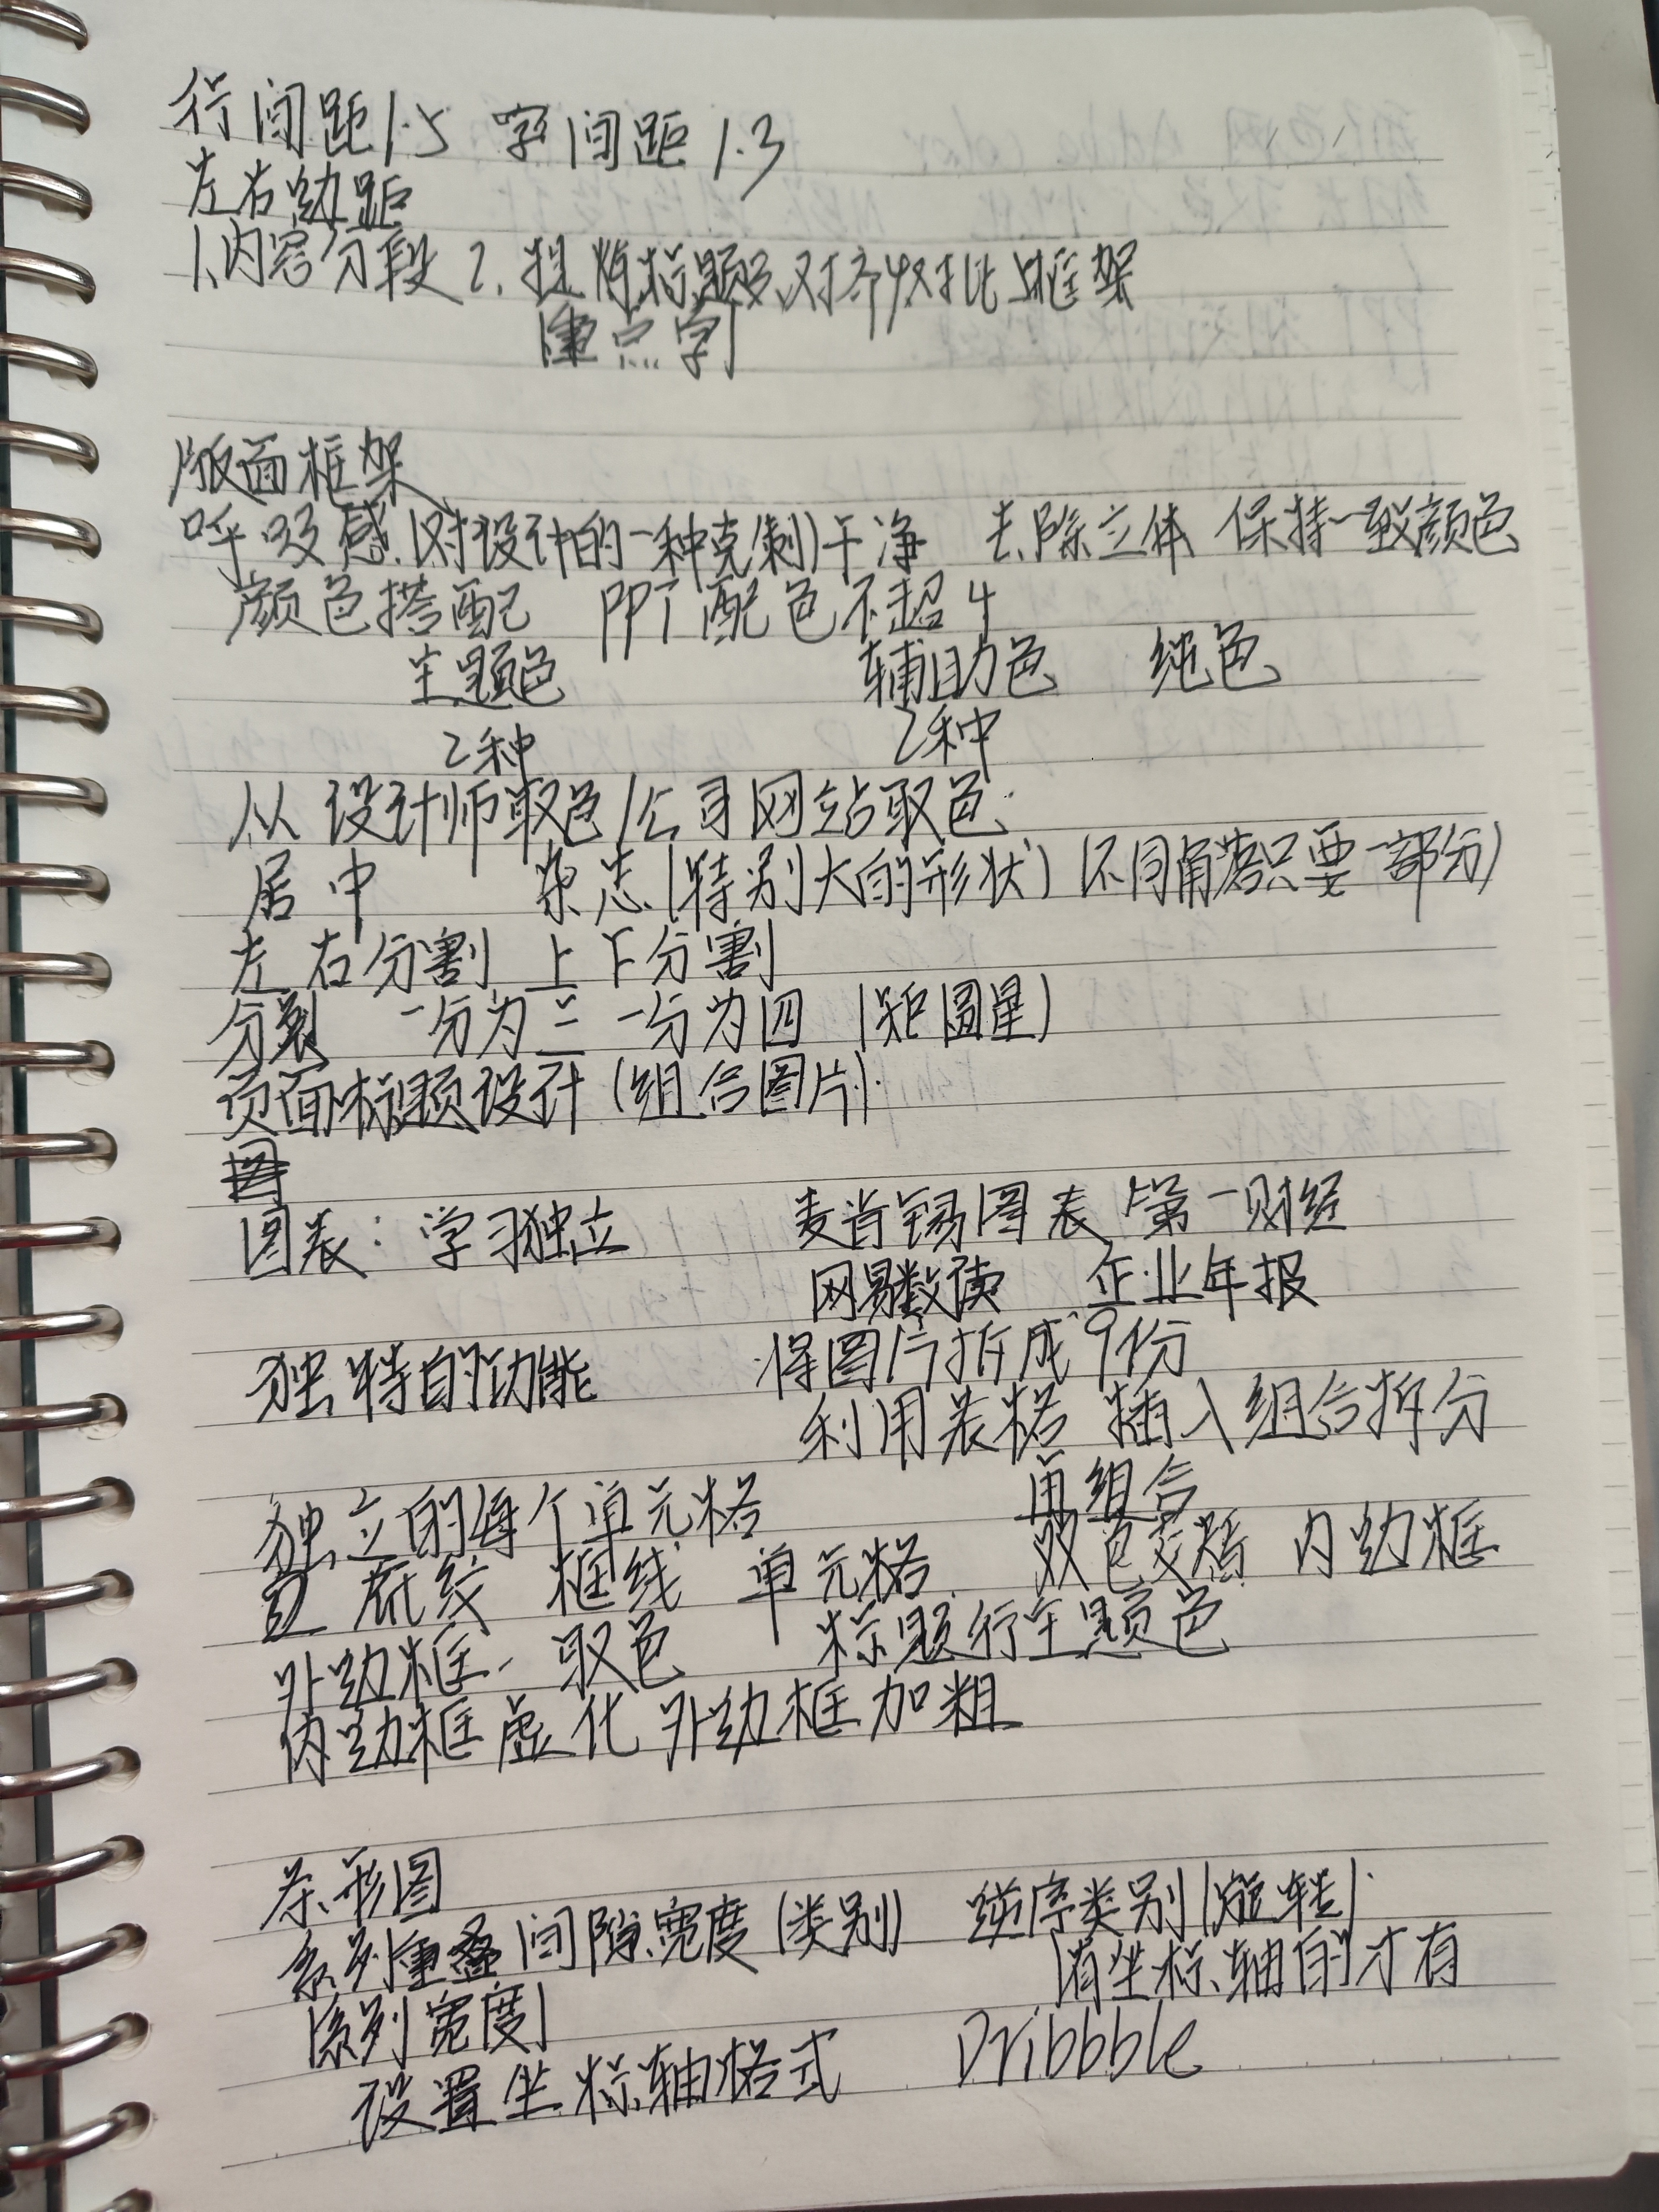 行间距1.5 字间距1.3
左右边距
1.内容分段 2. 提炼标题 对齐 对比 框架
(重点字)
版面框架
呼吸感(对设计的一种克制)干净 去除立体 保持一致颜色
颜色搭配 PPT配色不超4
主题色 辅助色 纯色
2种 2种
从设计师取色/公司网站取色
居中 杂志(特别大的形状)(不同角落只要一部分)
左右分割 上下分割
分裂 一分为三 一分为四 (矩圆星)
页面标题设计(组合图片)
图表:学习独立 麦肯锡图表 第一财经
网易数读 企业年报
独特的功能 将图片拆成9份
利用表格 插入组合拆分
再组合
独立的每个单元格
底纹 框线 单元格 双色交替 内边框
外边框 取色 标题行主题色
内边框虚化 外边框加粗
条形图
系列重叠 间隙宽度(类别) 逆序类别(旋转)
(系列宽度) (有坐标轴的才有
设置坐标轴格式 Dribbble